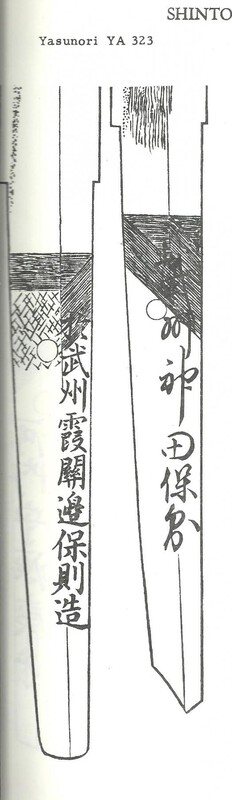 SHINTO
Yasunori YA 323
州神田保
於武州霞關邊保則造